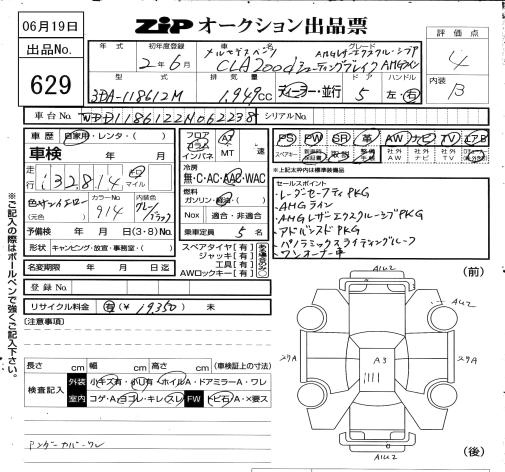 06月19日
ZiP オークション出品票
出品No.
629
年式 初年度登録 車名 グレード
2年6月
メルセデスベンツ
CLA200dシューティングブレイク
AMGレザーエクスクルーシブP
評価点
4
内装
B
型式 排気量 ドア ハンドル
3DA-118612M 1,949cc ディーラー・並行 5 左・右
車台No. シリアルNo.
車歴 自家用・レンタ・( )
車検 年 月
走行 マイル
カラーNo.
(元色)
914
予備検 年 月 日(3・8)No.
形状 キャンピング・放宣・事務室・( )
名変期限 年 月 日迄
登録No.
フロア コラム インパネ
AT
MT 速
冷房
無・C・AC・AAC・WAC
燃料
ガソリン・軽油・( )
Nox 適合・非適合
乗車定員 5 名
スペアタイヤ[有]
ジャッキ[有]
工具[有]
AWロックキー[有]
PS PW SR 革 AW ナビ TV エアB
スペアキー
取説
社外AW 社外ナビ 社外TV
★上記太枠内は標準装備品
セールスポイント
・レーダーセーフティPKG
・AMGライン
・AMGレザーエクスクルーシブPKG
・アドバンスドPKG
・パノラミックスライディングルーフ
・ワンオーナー車
リサイクル料金 有(¥19,350) 未
[注意事項]
長さ cm 幅 cm 高さ cm (車検証上の寸法)
検査記入
外装 小キズ有・小凹有・ホイルA・ドアミラーA・ワレ
室内 コゲ・A・ヨゴレ・キレ・スレ FW トビ石A・×要ス
アンダーカバーワレ
※ご記入の際はボールペンで強くご記入下さい。
(前)
A1U2
A3
27A
27A
A1U2
(後)